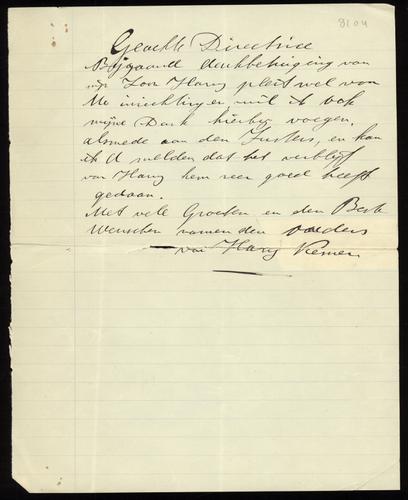 8104
Geachte Directrice
Bijgaand dankbetuiging van
mijn Zoon Harry pleit wel van
Uw inrichting en wil ik ook
mijne Dank hierbij voegen.
alsmede aan den Zusters, en kan
ik U melden dat het verblijf
van Harry hem zeer goed heeft
gedaan.
Met vele Groeten en den Beste
Wenschen namen den ouders
van Harry